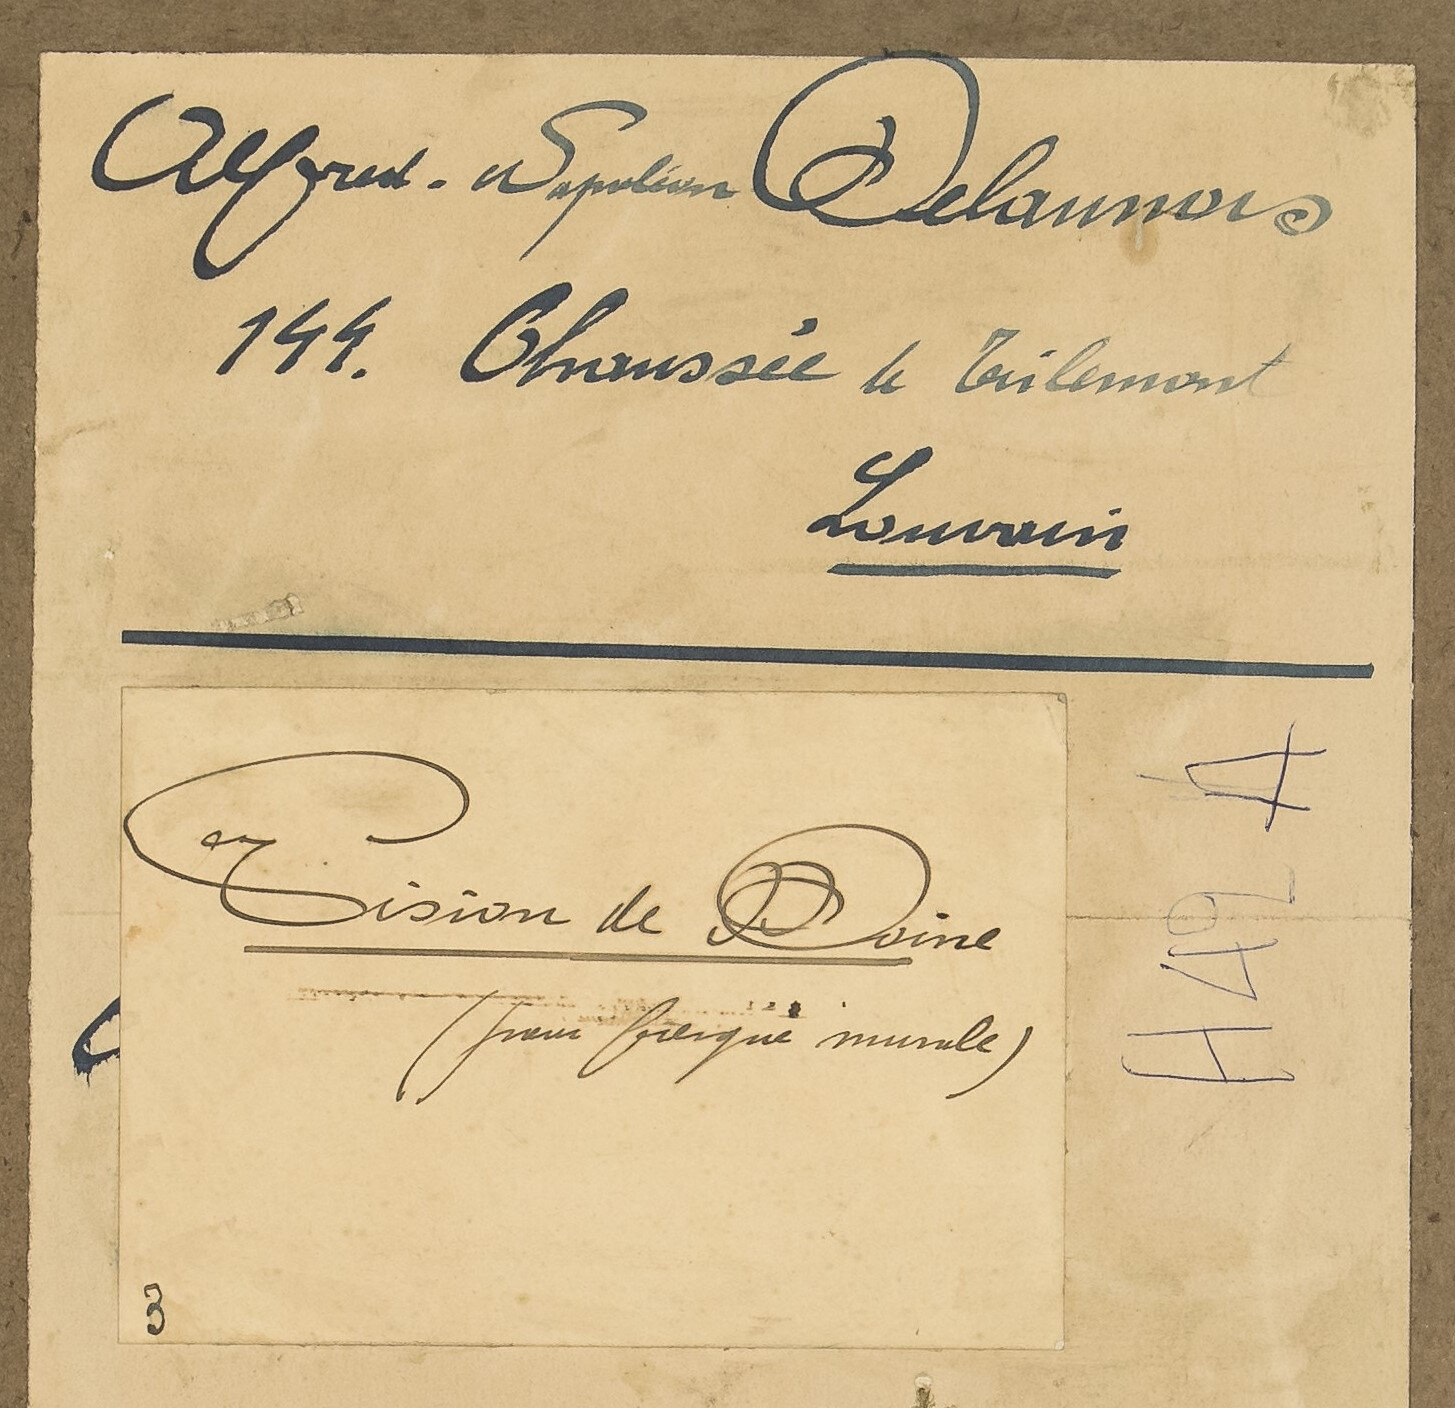 Alfred-Napoléon Delaunois
144. Chaussée de Tirlemont
Louvain
Vision de Moine
(pour fresque murale)
3
H 492 A